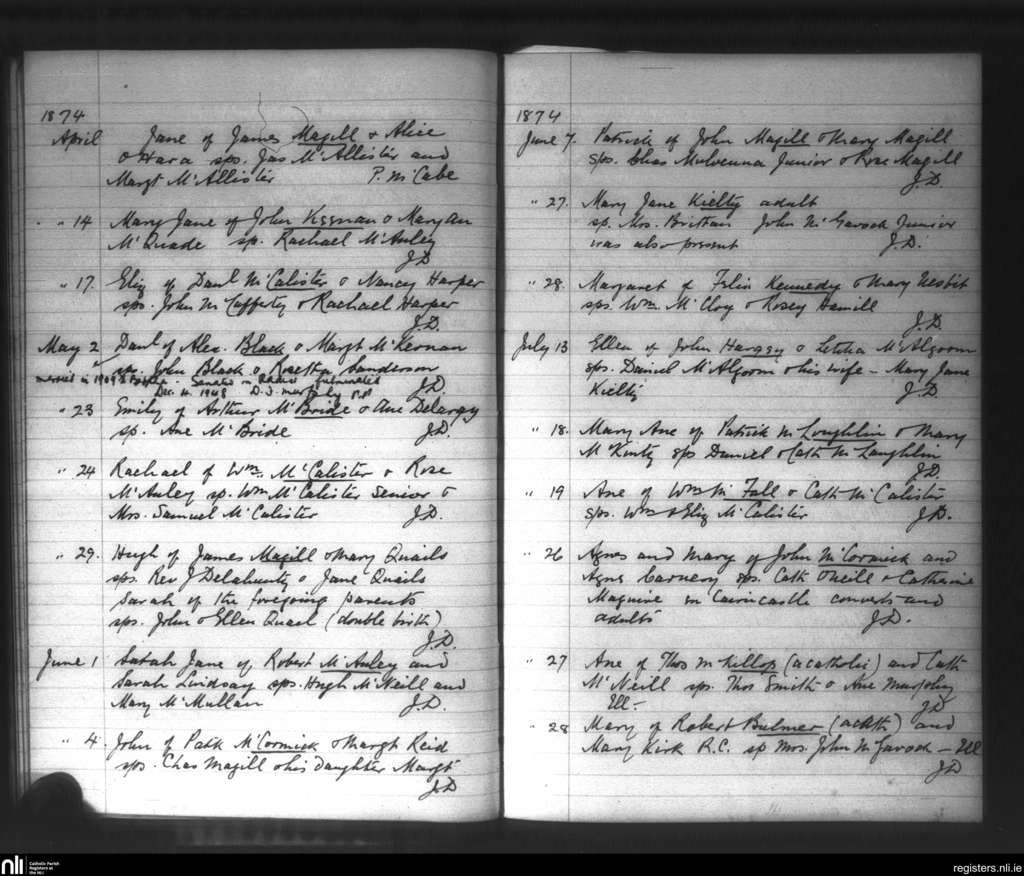 1874
April Jane of James Magill & Alice
O'Hara sps. Jas McAllister and
Margt McAllister P. McCabe
" 14 Mary Jane of John Keenan & Mary an
McQuade sp. Rachael McAuley
J.D
" 17. Eliz of Danl McCalister & Nancy Harper
sps. John McCafferty & Rachael Harper
J.D.
May 2 Danl of Alex. Black & Margt McKernan
sps. John Black & Rosetta Sanderson
married in 1909
Dec. 4. 1948 D.J. Murphy P.P J.D.
" 23 Emily of Arthur McBride & Ane Delargy
sp. Ane McBride J.D.
" 24 Rachael of Wm. McCalister & Rose
McAuley sp. Wm McCalister Senior &
Mrs. Samuel McCalister J.D.
" 29. Hugh of James Magill & Mary Quails
sps. Rev J Delahunty & Jane Quails
Sarah of the foregoing parents
sps. John & Ellen Quail (double birth)
J.D.
June 1 Sarah Jane of Robert McAuley and
Sarah Lindsay sps. Hugh McNeill and
Mary McMullan J.D.
" 4. John of Patk McCormick & Margt Reid
sps. Chas Magill & his Daughter Margt
J.D
1874
June 7. Patrick of John Magill & Mary Magill
sps. Chas Mulvenna Junior & Rose Magill
J.D.
" 27. Mary Jane Kielty adult
sp. Mrs. Brittan John McGavock Junior
was also present J.D.
" 28. Margaret of Felix Kennedy & Mary Nesbit
sps. Wm McCloy & Rosey Hamill
J.D.
July 13 Ellen of John Harvey & Letitia McAlgoom
sps. Daniel McAlgoom & his wife – Mary Jane
Kielty J.D
" 18. Mary Ane of Patrick McLoughlin & Mary
McKinty sps Daniel & Cath McLaughlin
J.D.
" 19 Ane of Wm McFall & Cath McCalister
sps. Wm & Eliz McCalister J.D.
" 26 Agnes and Mary of John McCormick and
Agnes Carnery sps. Cath O'Neill & Catharine
Maguire in Cairncastle converts and
adults J.D.
" 27 Ane of Thos McKillop (acatholic) and Cath
McNeill sps. Thos Smith & Ane Murphy
Ill – J.D
" 28 Mary of Robert Bulmer (acath) and
Mary Kirk R.C. sp Mrs. John McGavock – Ill
J.D
nli Catholic Parish
Registers at
the NLI
registers.nli.ie